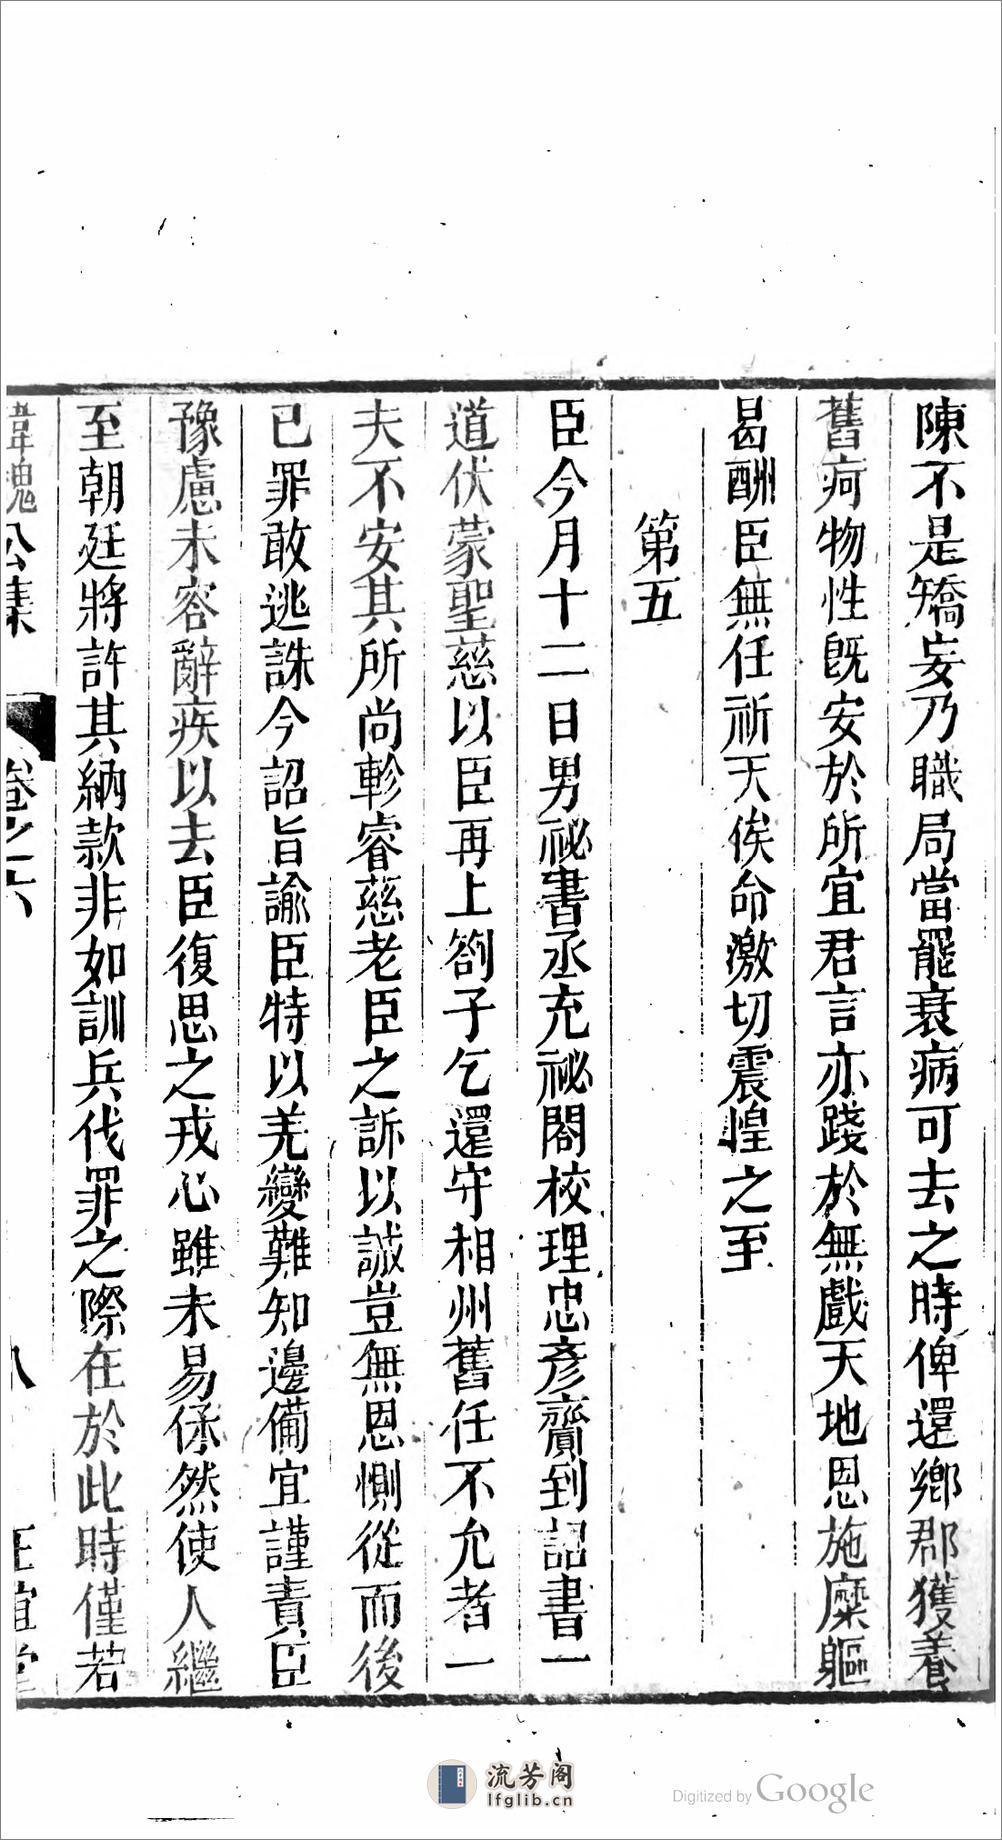 陳不是矯妄乃職局當罷衰病可去之時俾還鄉郡獲養
舊疴物性旣安於所宜君言亦踐於無戲天地恩施糜軀
曷酬臣無任祈天俟命激切震惶之至
第五
臣今月十二日男祕書丞充祕閣校理忠彥齎到詔書一
道伏蒙聖慈以臣再上劄子乞還守相州舊任不允者一
夫不安其所尚軫睿慈老臣之訴以誠豈無恩惻從而後
已罪敢逃誅今詔旨諭臣特以羌變難知邊備宜謹責臣
豫慮未容辭疾以去臣復思之戎心雖未易保然使人繼
至朝廷將許其納款非如訓兵伐罪之際在於此時僅若
韓魏公集
卷之六
八
正誼堂
流芳阁
lfglib.cn
Digitized by Google